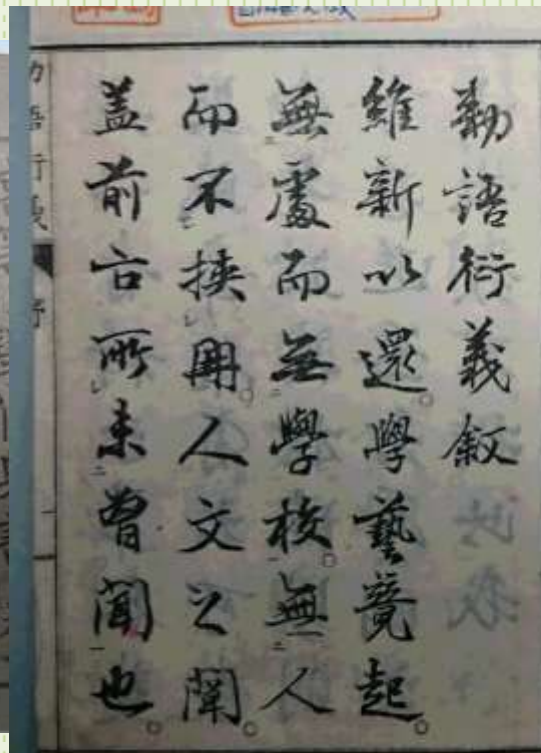 勅語衍義叙
維新以還。學藝競起。
無處而無學校。無人
而不挾冊。人文之闡。
盖前古所未曾聞也。